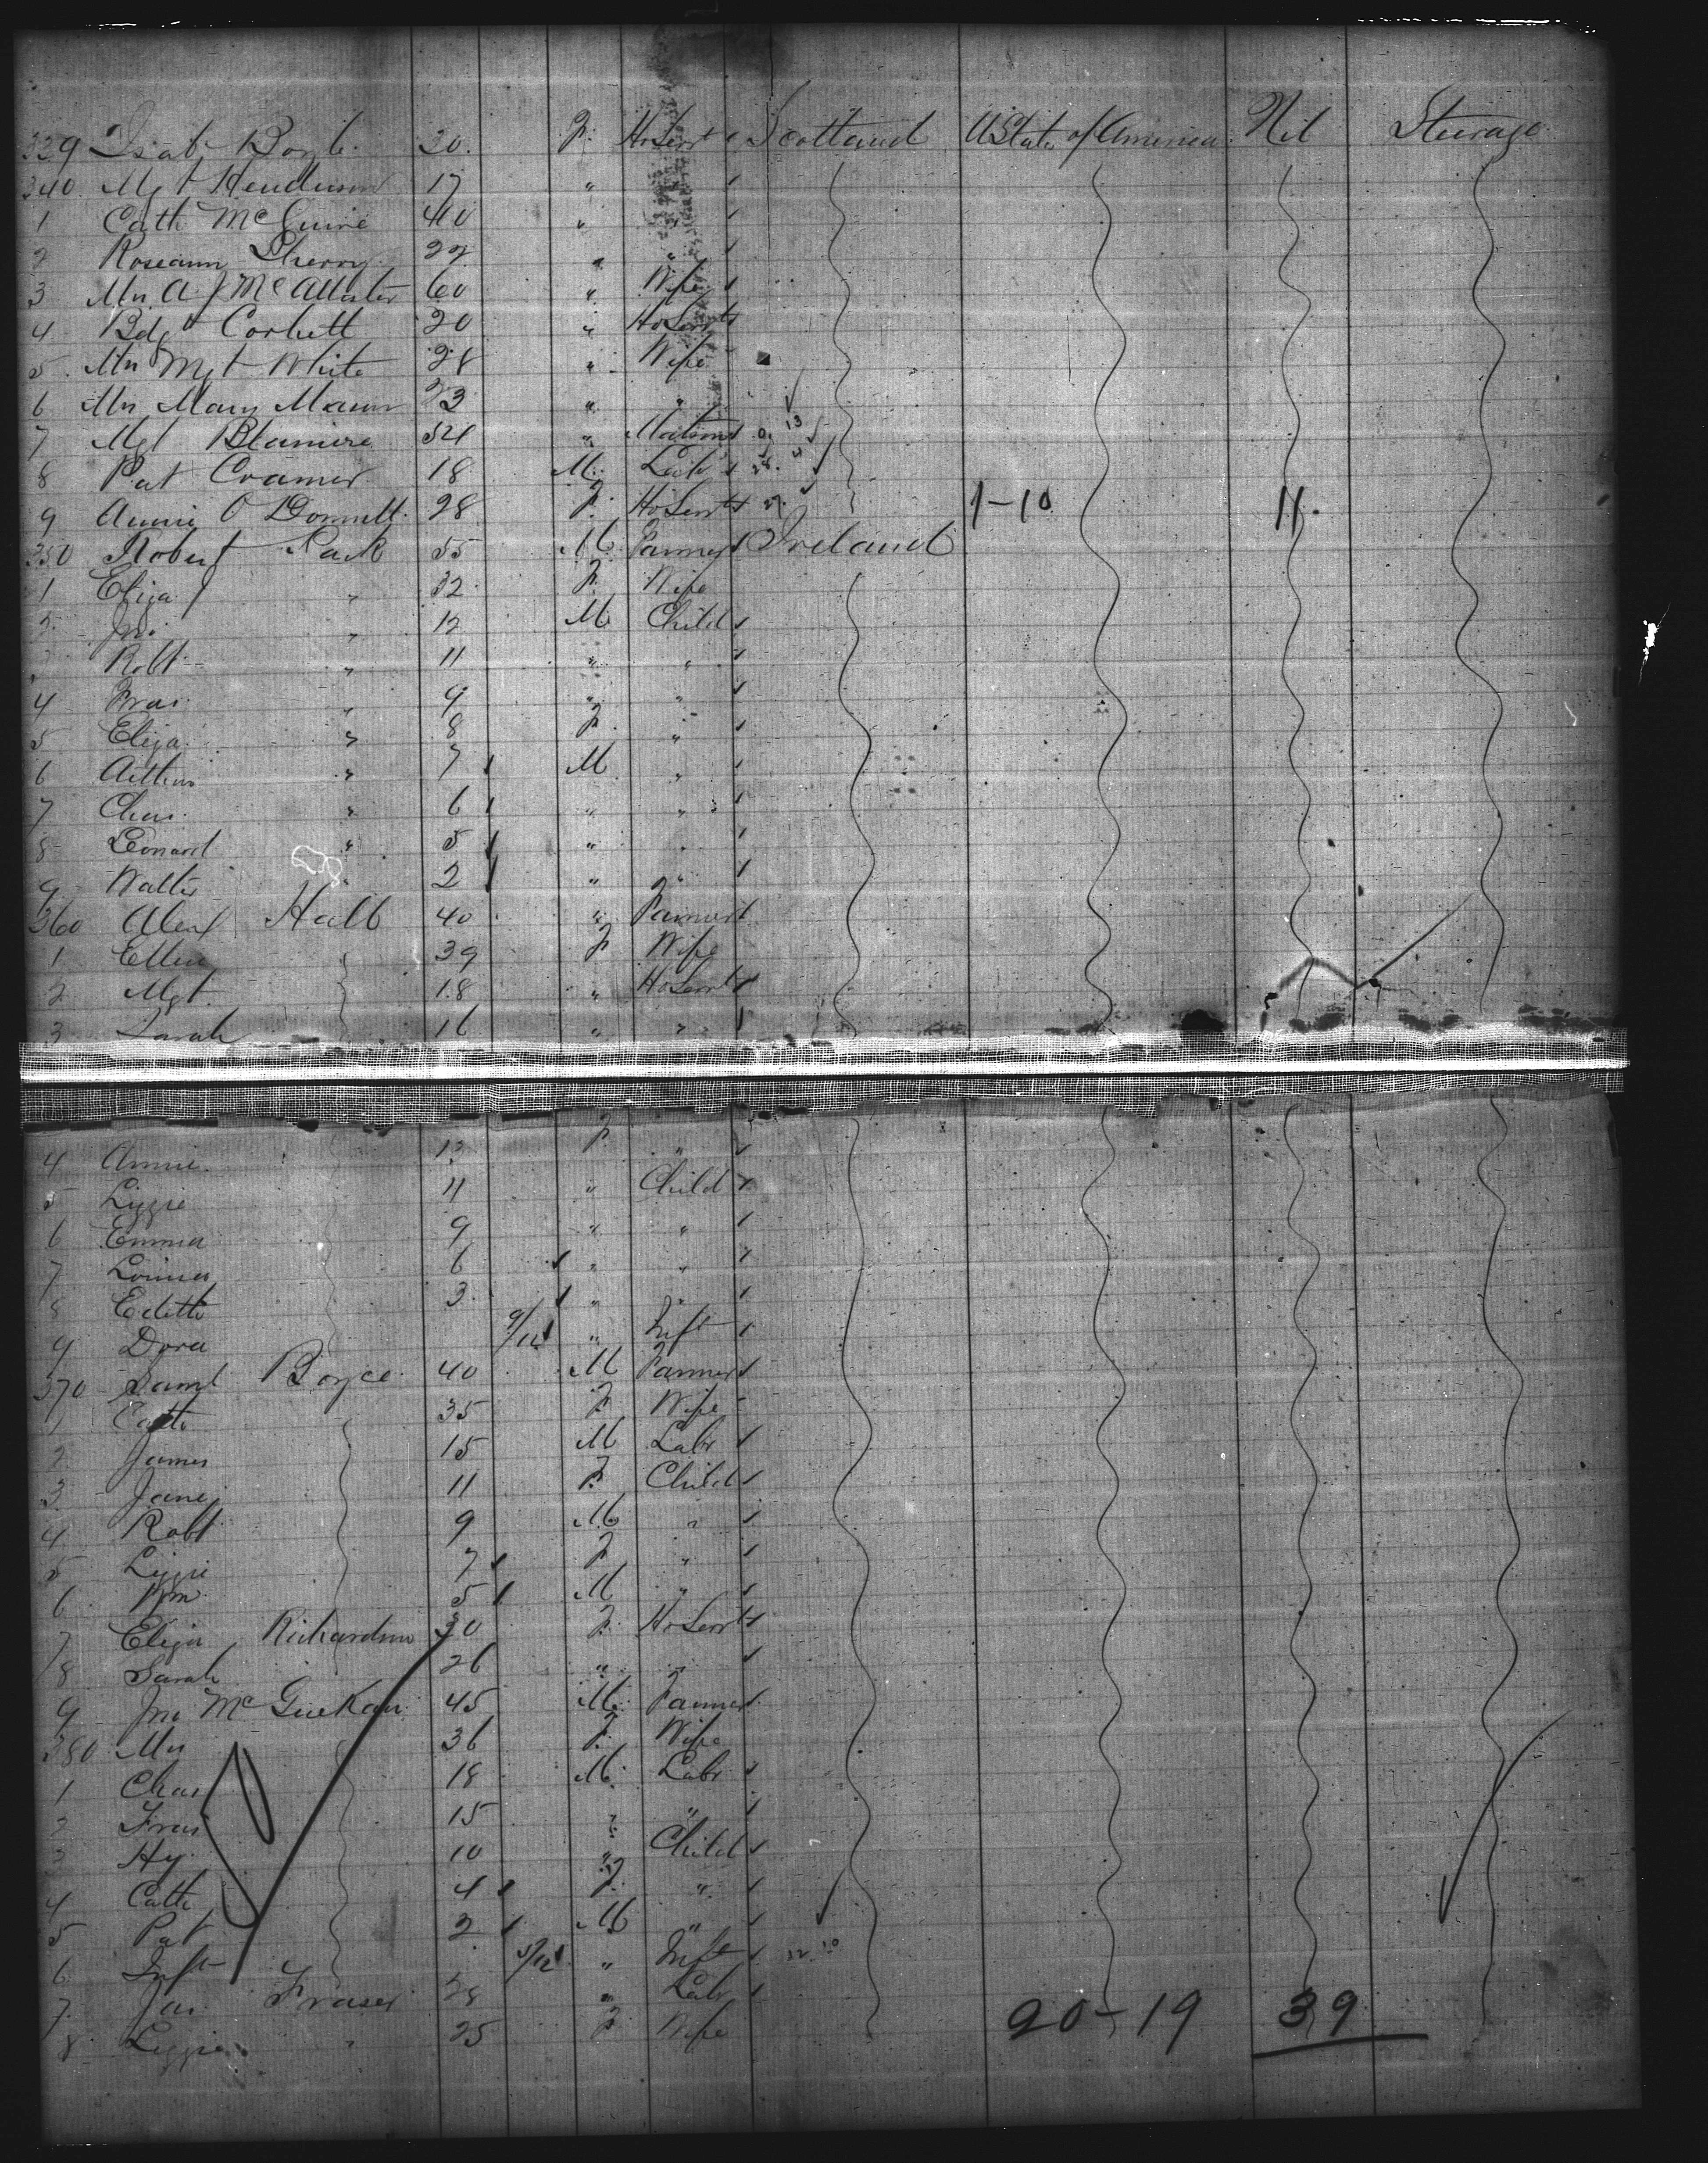 339 Isab Boyle 20. F. HoServt Scotland UState of America Nil Steerage
340. Mgt Henderson 17 "
1 Cath McGuire 40 " "
2 Roseann Sherry 22 " "
3 Mrs A J McAllister 60 " Wife
4. Bdgt Corbett 20 " HoServt
5. Mrs Mgt White 28 " Wife
6 Mrs Mary Mann 23 " "
7 Mgt Blamire 54 " Matron 13
8 Pat Cramer 18 M. Labr
9 Annie O Donnell 28 F. HoServt 1-10 11.
350 Robert Park 55 M Farmer Ireland
1 Eliza " 32 F. Wife
2. Jno. " 12 M Child
Robt " 11 " "
4 Fras. " 9 " "
5 Eliza " 8 F. "
6 Arthur " 7 M "
7 Chas. " 6 " "
8 Leonard " 5 " "
9 Walter " 2 " "
360 Alexr Hall 40 " Farmer
1 Ellen 39 F Wife
2 Mgt. 18 " HoServt
3 Sarah 16 " "
4 Annie. 13 F "
5 Lizzie 11 " Child
6 Emma 9 " "
7 6 " "
8 Edith 3. " "
9 Dora 9/12 " Inft
370 Saml Boyce 40 M Farmer
1 Cath 35 F Wife
2 James 15 M Labr
3. Jane 11 F. Child
4. Robt 9 M "
5 Lizzie 7 F "
6. Wm. 5 M "
7 Eliza Richardson 30 F. HoServt
8 Sarah 26 " "
9 Jno McGuckan 45 M. Farmer
380 Mrs 36 F. Wife
1 Chas 18 M. Labr
2 Fras 15 " "
3 Hy. 10 " Child
4 Cath 4 F. "
5 Pat 2 M "
6 Inft 5/12 " Inft
7. Jas. Fraser 28 " Labr 20-19 39
8. Lizzie " 25 F Wife